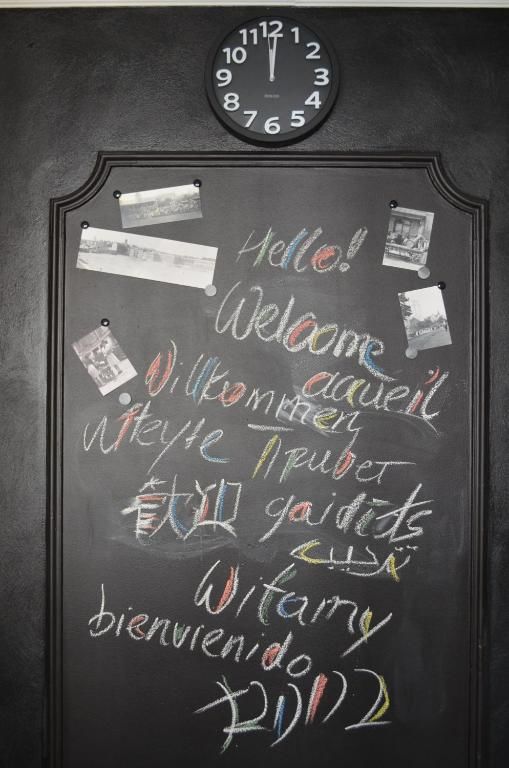 12 1 2 3 4 5 6 7 8 9 10 11
Hello!
Welcome
accueil
Willkommen
witeyte
Привет
歓迎
gaidīts
ترحيب
Witamy
bienvienido